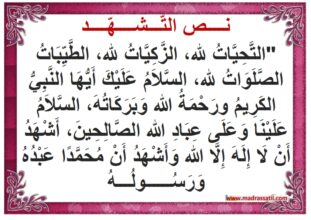 نـــص التَّـــشَـهُّـــد
"التَّحِيَّاتُ لله، الزَّكِيَّاتُ لله، الطَّيِّبَاتُ
الصَّلَوَاتُ لله، السَّلاَمُ عَلَيْكَ أَيُّهَا النَّبِيُّ
الكَرِيمُ ورَحْمَةُ الله وَبَرَكَاتُهُ، السَّلاَمُ
عَلَيْنَا وَعَلَى عِبَادِ الله الصَّالِحِينَ، أَشْهَدُ
أَنْ لاَ إِلَهَ إِلَّا الله وَأَشْهَدُ أَنْ مُحَمَّدًا عَبْدُهُ
وَرَســـــولُـــهُ
www.madrassatii.com